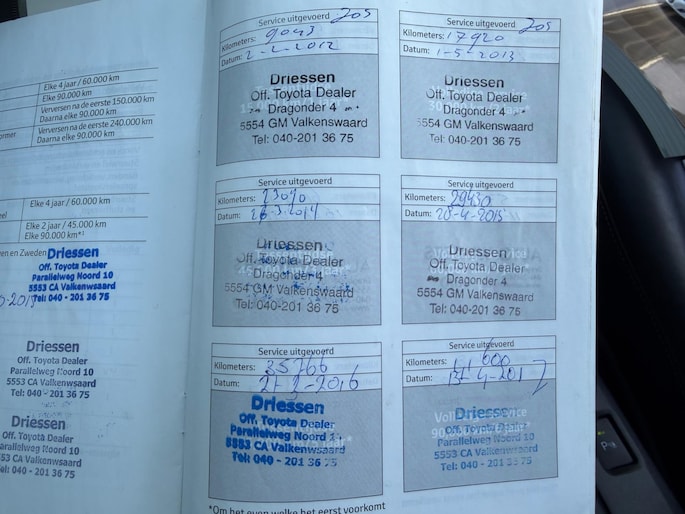 Elke 4 jaar / 60.000 km
Elke 90.000 km
Verversen na de eerste 150.000 km
Daarna elke 90.000 km
Verversen na de eerste 240.000 km
Daarna elke 90.000 km
Elke 4 jaar / 60.000 km
Elke 2 jaar / 45.000 km
Elke 90.000 km*¹
en Zweden
Driessen
Off. Toyota Dealer
Parallelweg Noord 10
5553 CA Valkenswaard
Tel: 040 - 201 36 75
Driessen
Off. Toyota Dealer
Parallelweg Noord 10
5553 CA Valkenswaard
Tel: 040 - 201 36 75
Driessen
Off. Toyota Dealer
Parallelweg Noord 10
5553 CA Valkenswaard
Tel: 040 - 201 36 75
Service uitgevoerd
Kilometers: 9043
Datum: 2-2-2012
Driessen
Off. Toyota Dealer
Dragonder 4
5554 GM Valkenswaard
Tel: 040-201 36 75
Service uitgevoerd
Kilometers: 17920
Datum: 1-5-2013
Driessen
Off. Toyota Dealer
Dragonder 4
5554 GM Valkenswaard
Tel: 040-201 36 75
Service uitgevoerd
Kilometers: 23070
Datum: 26-3-2014
Driessen
Off. Toyota Dealer
Dragonder 4
5554 GM Valkenswaard
Tel: 040-201 36 75
Service uitgevoerd
Kilometers: 29430
Datum: 20-4-2015
Driessen
Off. Toyota Dealer
Dragonder 4
5554 GM Valkenswaard
Tel: 040-201 36 75
Service uitgevoerd
Kilometers: 35766
Datum: 21-3-2016
Driessen
Off. Toyota Dealer
Parallelweg Noord 1
5553 CA Valkenswaard
Tel: 040 - 201 36 75
Service uitgevoerd
Kilometers: 41600
Datum: 13-4-2017
Driessen
Off. Toyota Dealer
Parallelweg Noord 10
5553 CA Valkenswaard
Tel: 040 - 201 36 75
*Om het even welke het eerst voorkomt